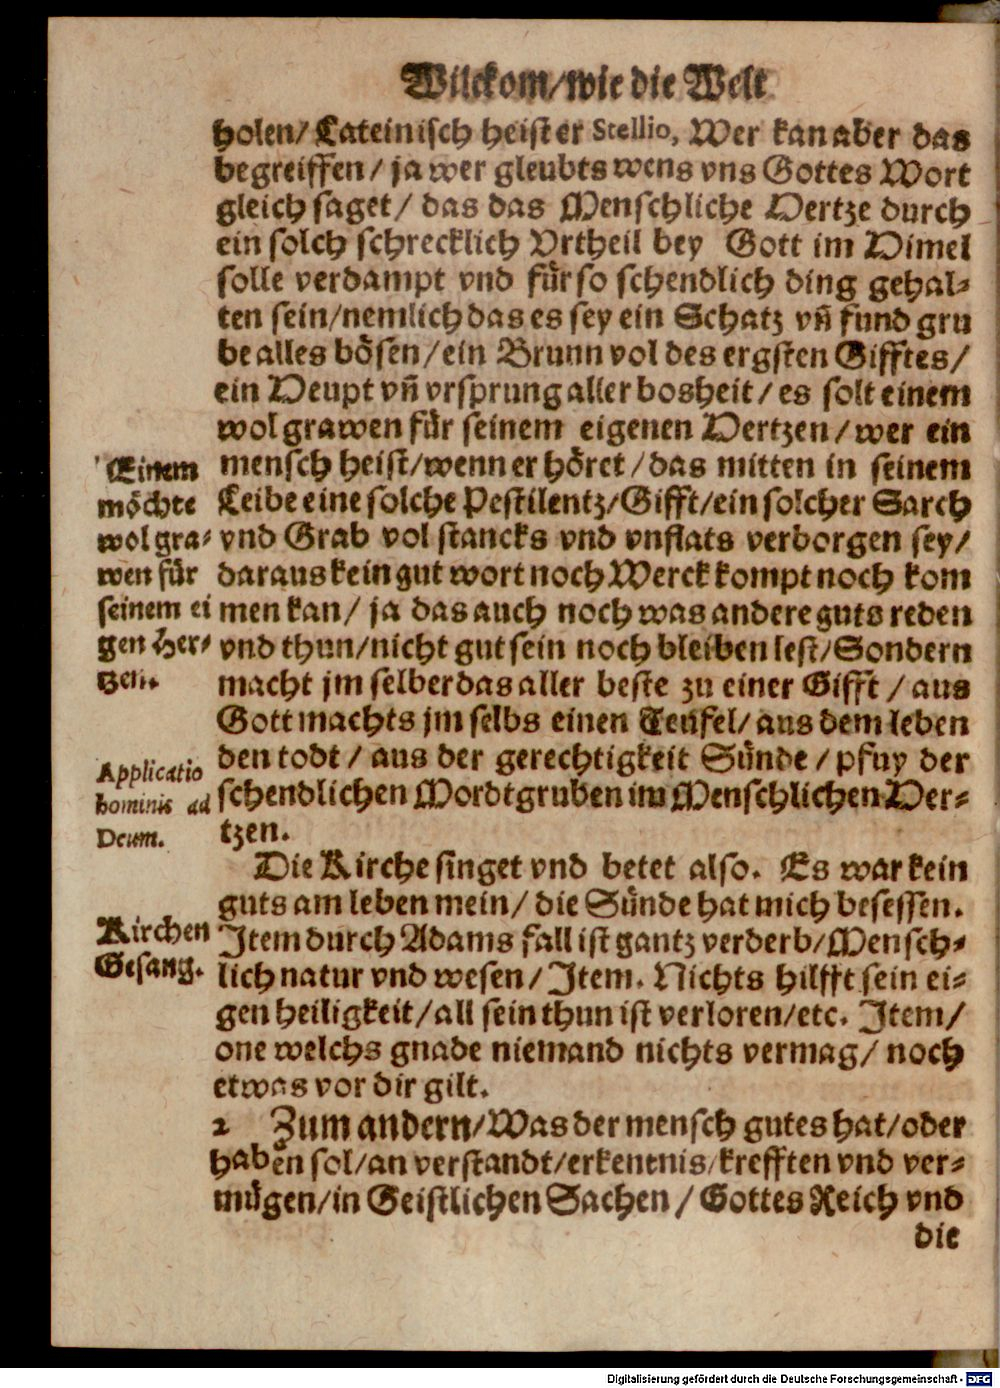 Wilckom/wie die Welt
holen/ Lateinisch heist er Stellio, Wer kan aber das
begreiffen/ ja wer gleubts wens vns Gottes Wort
gleich saget/ das das Menschliche Hertze durch
ein solch schrecklich Vrtheil bey Gott im Himel
solle verdampt vnd fůr so schendlich ding gehal-
ten sein/nemlich das es sey ein Schatz vñ fund gru
be alles bösen/ein Brunn vol des ergsten Gifftes/
ein Heupt vñ vrsprung aller bosheit/ es solt einem
wol grawen fůr seinem eigenen Hertzen/wer ein
mensch heist/wenn er höret/das mitten in seinem
Leibe eine solche Pestilentz/Gifft/ein solcher Sarch
vnd Grab vol stancks vnd vnflats verborgen sey/
daraus kein gut wort noch Werck kompt noch kom
men kan/ ja das auch noch was andere guts reden
vnd thun/nicht gut sein noch bleiben lest/Sondern
macht jm selber das aller beste zu einer Gifft/ aus
Gott machts jm selbs einen Teufel/ aus dem leben
den todt/ aus der gerechtigkeit Sůnde/ pfuy der
schendlichen Mordtgruben im Menschlichen Her-
tzen.
Einem
möchte
wol gra-
wen fůr
seinem ei
gen Her-
tzen.
Applicatio
hominis ad
Deum.
Die Kirche singet vnd betet also. Es war kein
guts am leben mein/ die Sůnde hat mich besessen.
Item durch Adams fall ist gantz verderb/Mensch-
lich natur vnd wesen/Item. Nichts hilfft sein ei-
gen heiligkeit/all sein thun ist verloren/etc. Item/
one welchs gnade niemand nichts vermag/ noch
etwas vor dir gilt.
Kirchen
Gesang.
2 Zum andern/Was der mensch gutes hat/oder
haben sol/an verstandt/erkentnis/krefften vnd ver-
můgen/in Geistlichen Sachen/ Gottes Reich vnd
die
Digitalisierung gefördert durch die Deutsche Forschungsgemeinschaft - DFG